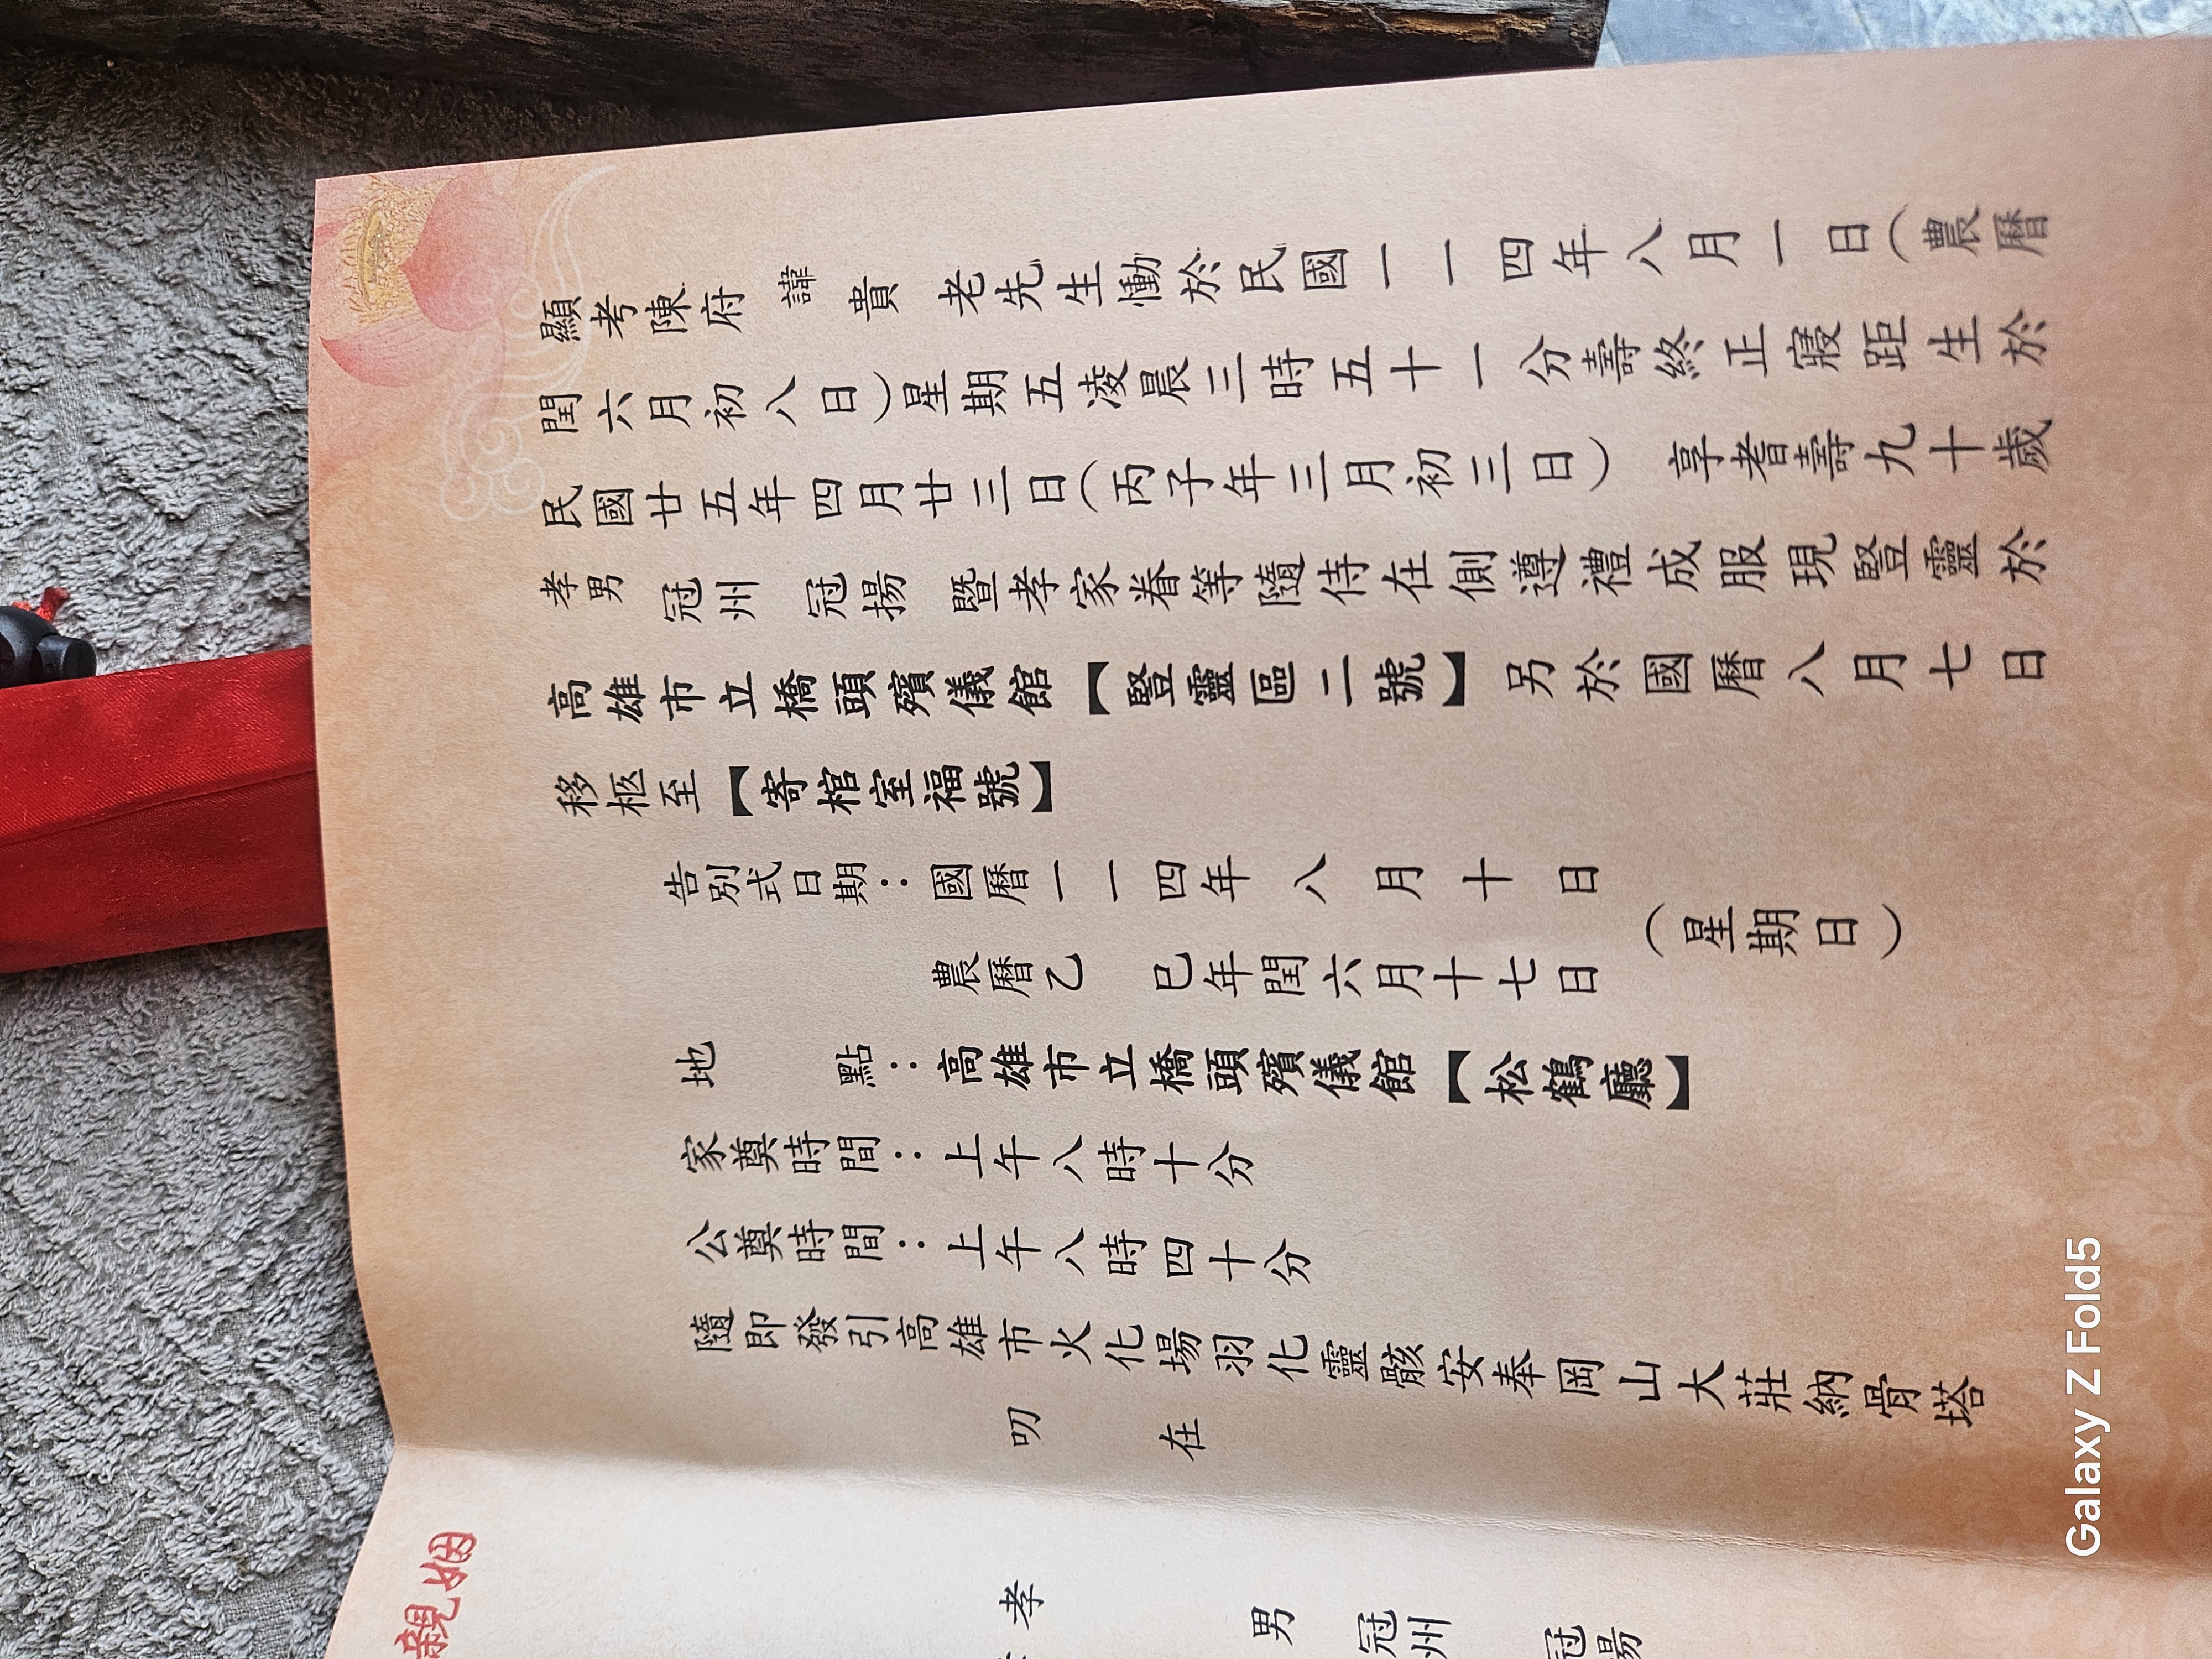 顯考陳府諱貴老先生慟於民國一一四年八月一日（農曆
閏六月初八日）星期五凌晨三時五十一分壽終正寢距生於
民國廿五年四月廿三日（丙子年三月初三日）享耆壽九十歲
孝男冠州冠揚暨孝家眷等隨侍在側遵禮成服現豎靈於
高雄市立橋頭殯儀館【豎靈區二號】另於國曆八月七日
移柩至【寄棺室福號】
告別式日期：國曆一一四年八月十日
農曆乙巳年閏六月十七日
（星期日）
地點：高雄市立橋頭殯儀館【松鶴廳】
家奠時間：上午八時十分
公奠時間：上午八時四十分
隨即發引高雄市火化場羽化靈骸安奉岡山大莊納骨塔
叨在
親姻
孝男冠州
冠揚
Galaxy Z Fold5